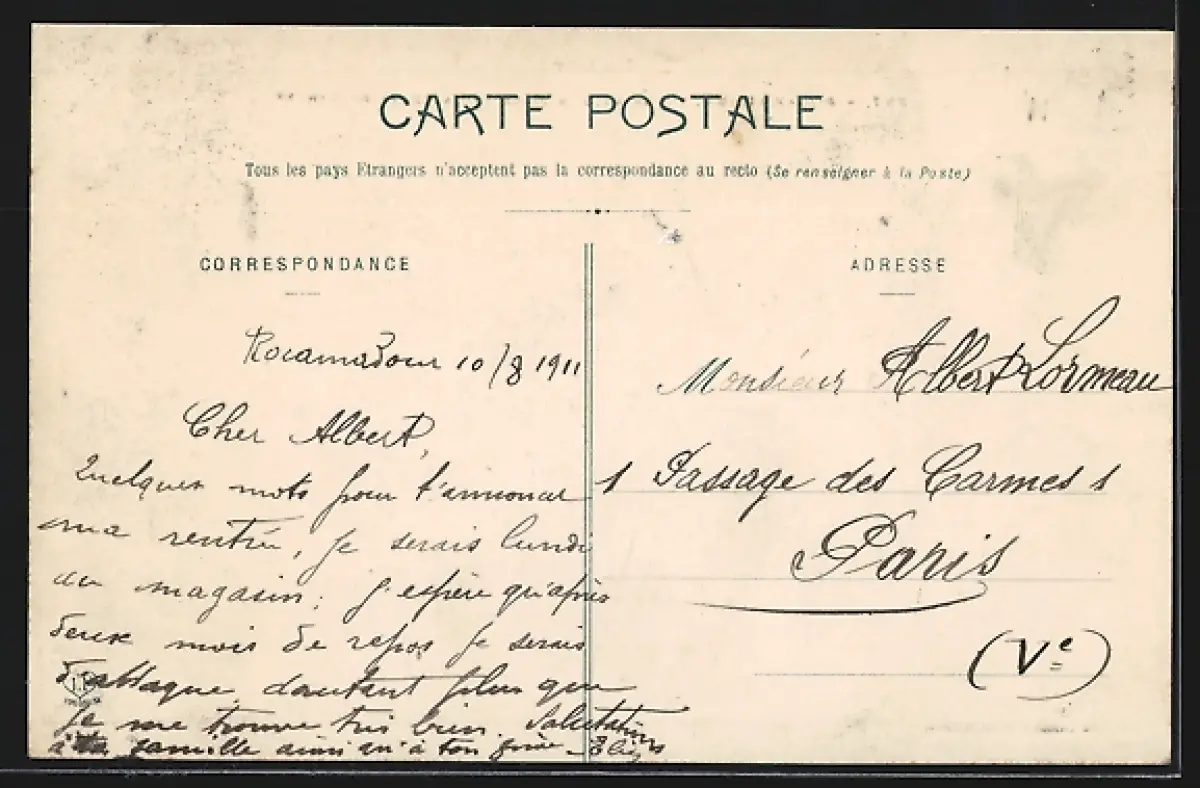 CARTE POSTALE
Tous les pays Etrangers n'acceptent pas la correspondance au recto (Se renseigner à la Poste)
CORRESPONDANCE
Rocamadour 10/8 1911
Cher Albert,
Quelques mots pour t'annoncer
ma rentrée, je serais lundi
au magasin. j'espère qu'après
deux mois de repos je serais
d'attaque, dautant plus que
je me trouve très bien. Salutations
à ta famille ainsi qu'à ton
ADRESSE
Monsieur Albert Lormeau
1 Passage des Carmes 1
Paris
(Ve)